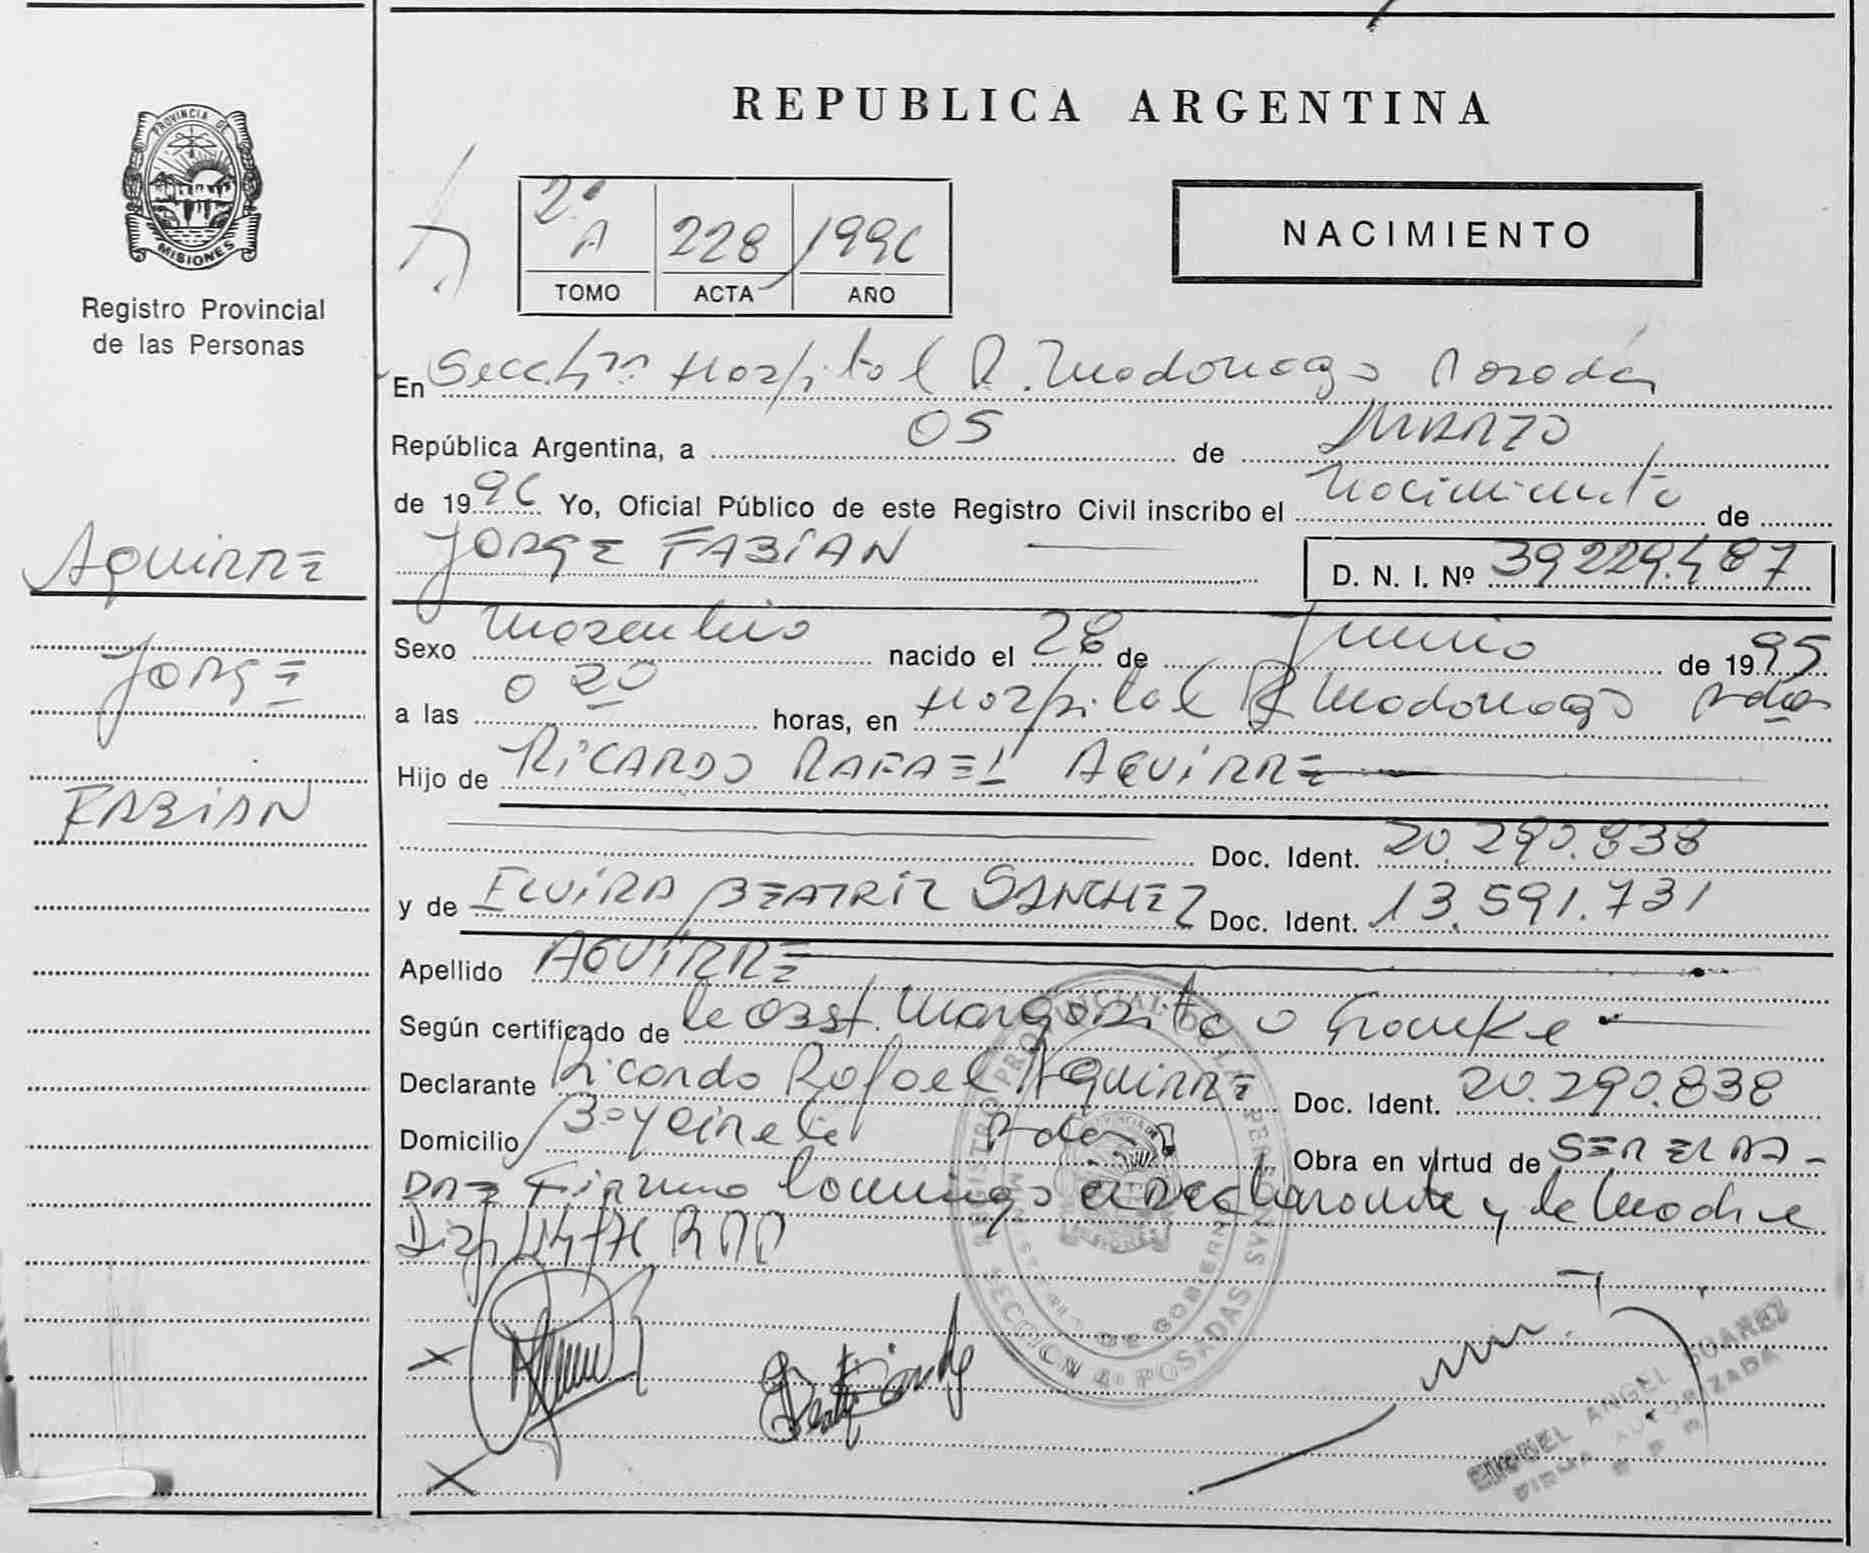 PROVINCIA DE
MISIONES
Registro Provincial
de las Personas
AGUIRRE
JORGE
FABIAN
REPUBLICA ARGENTINA
2º A 228 1996
TOMO ACTA AÑO
NACIMIENTO
En Secc. 4ta Hospital R. Madariaga Posadas
República Argentina, a 05 de MARZO
de 1996 Yo, Oficial Público de este Registro Civil inscribo el nacimiento de
JORGE FABIAN D. N. I. Nº 39229.487
Sexo masculino nacido el 28 de Junio de 1995
a las 0 20 horas, en Hospital R Madariaga Pdas
Hijo de RICARDO RAFAEL AGUIRRE
Doc. Ident. 20.290.838
y de ELVIRA BEATRIZ SANCHEZ Doc. Ident. 13.591.731
Apellido AGUIRRE
Según certificado de la Obst. Margarita
Declarante Ricardo Rafael AGUIRRE Doc. Ident. 20.290.838
Domicilio Pdas Obra en virtud de SER EL PA-
DRE Firman conmigo el declarante y la madre
RPP
SECCION 4º POSADAS
ANGEL SUAREZ
FIRMA AUTORIZADA